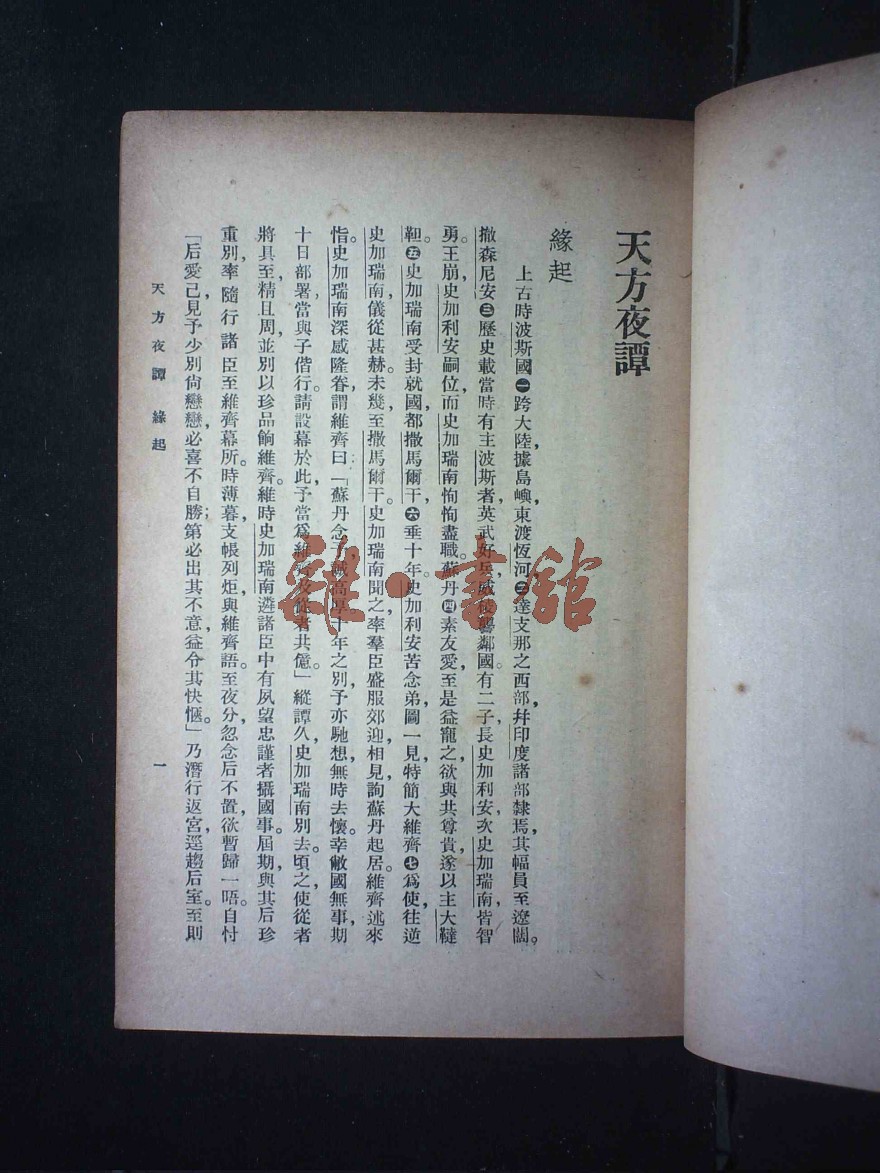 天方夜譚
緣起
上古時波斯國㊀跨大陸，據島嶼，東渡恆河，㊁達支那之西部，幷印度諸部隸焉，其幅員至遼闊。
撒森尼安㊂歷史載當時有主波斯者，英武好兵，威稜讋鄰國。有二子，長史加利安，次史加瑞南，皆智
勇。王崩，史加利安嗣位，而史加瑞南恂恂盡職。蘇丹㊃素友愛，至是益寵之，欲與共尊貴，遂以主大韃
靼。㊄史加瑞南受封就國，都撒馬爾干，㊅垂十年。史加利安苦念弟，圖一見，特簡大維齊㊆爲使，往逆
史加瑞南，儀從甚赫。未幾，至撒馬爾干。史加瑞南聞之，率羣臣盛服郊迎，相見，詢蘇丹起居。維齊述來
恉。史加瑞南深感隆眷，謂維齊曰：「蘇丹念予誠高厚。十年之別，予亦馳想無時去懷。幸敝國無事，期
十日部署，當與子偕行。請設幕於此，予當爲維齊及從者共億。」縱譚久，史加瑞南別去。頃之，使從者
將具至，精且周，並別以珍品餉維齊。維時史加瑞南遴諸臣中有夙望忠謹者攝國事。屆期，與其后珍
重別，率隨行諸臣至維齊幕所。時薄暮，支帳列炬，與維齊語至夜分，忽念后不置，欲暫歸一晤。自忖
「后愛己，見予少別尙戀戀，必喜不自勝；第必出其不意，益令其快愜。」乃潛行返宮，逕趨后室。至則
天方夜譚 緣起 一
雜·書館